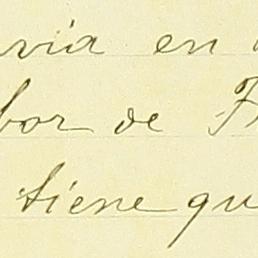 via en
bor de F
tiene qu